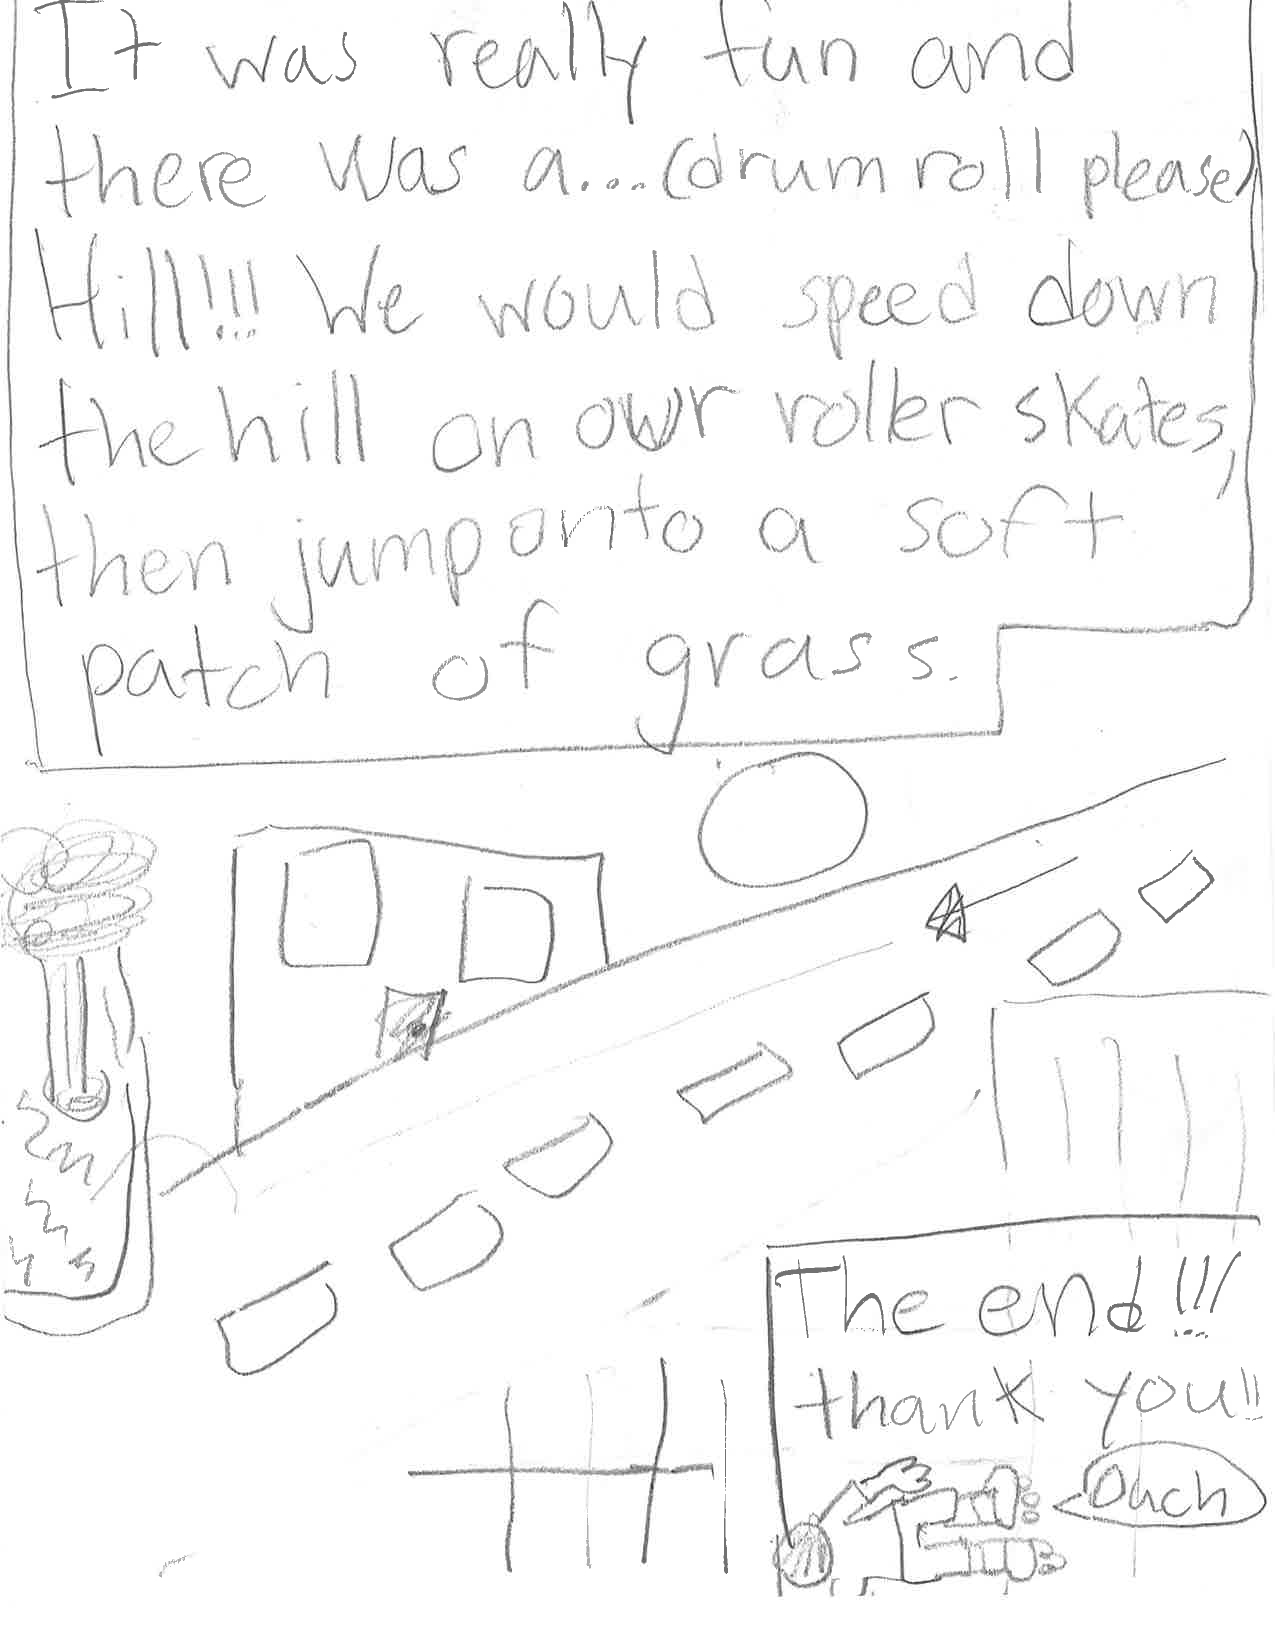 It was really fun and
there was a...(drum roll please)
Hill!!! We would speed down
the hill on owr roller skates,
then jump onto a soft
patch of grass.
The end!!!
thank you!!
Ouch